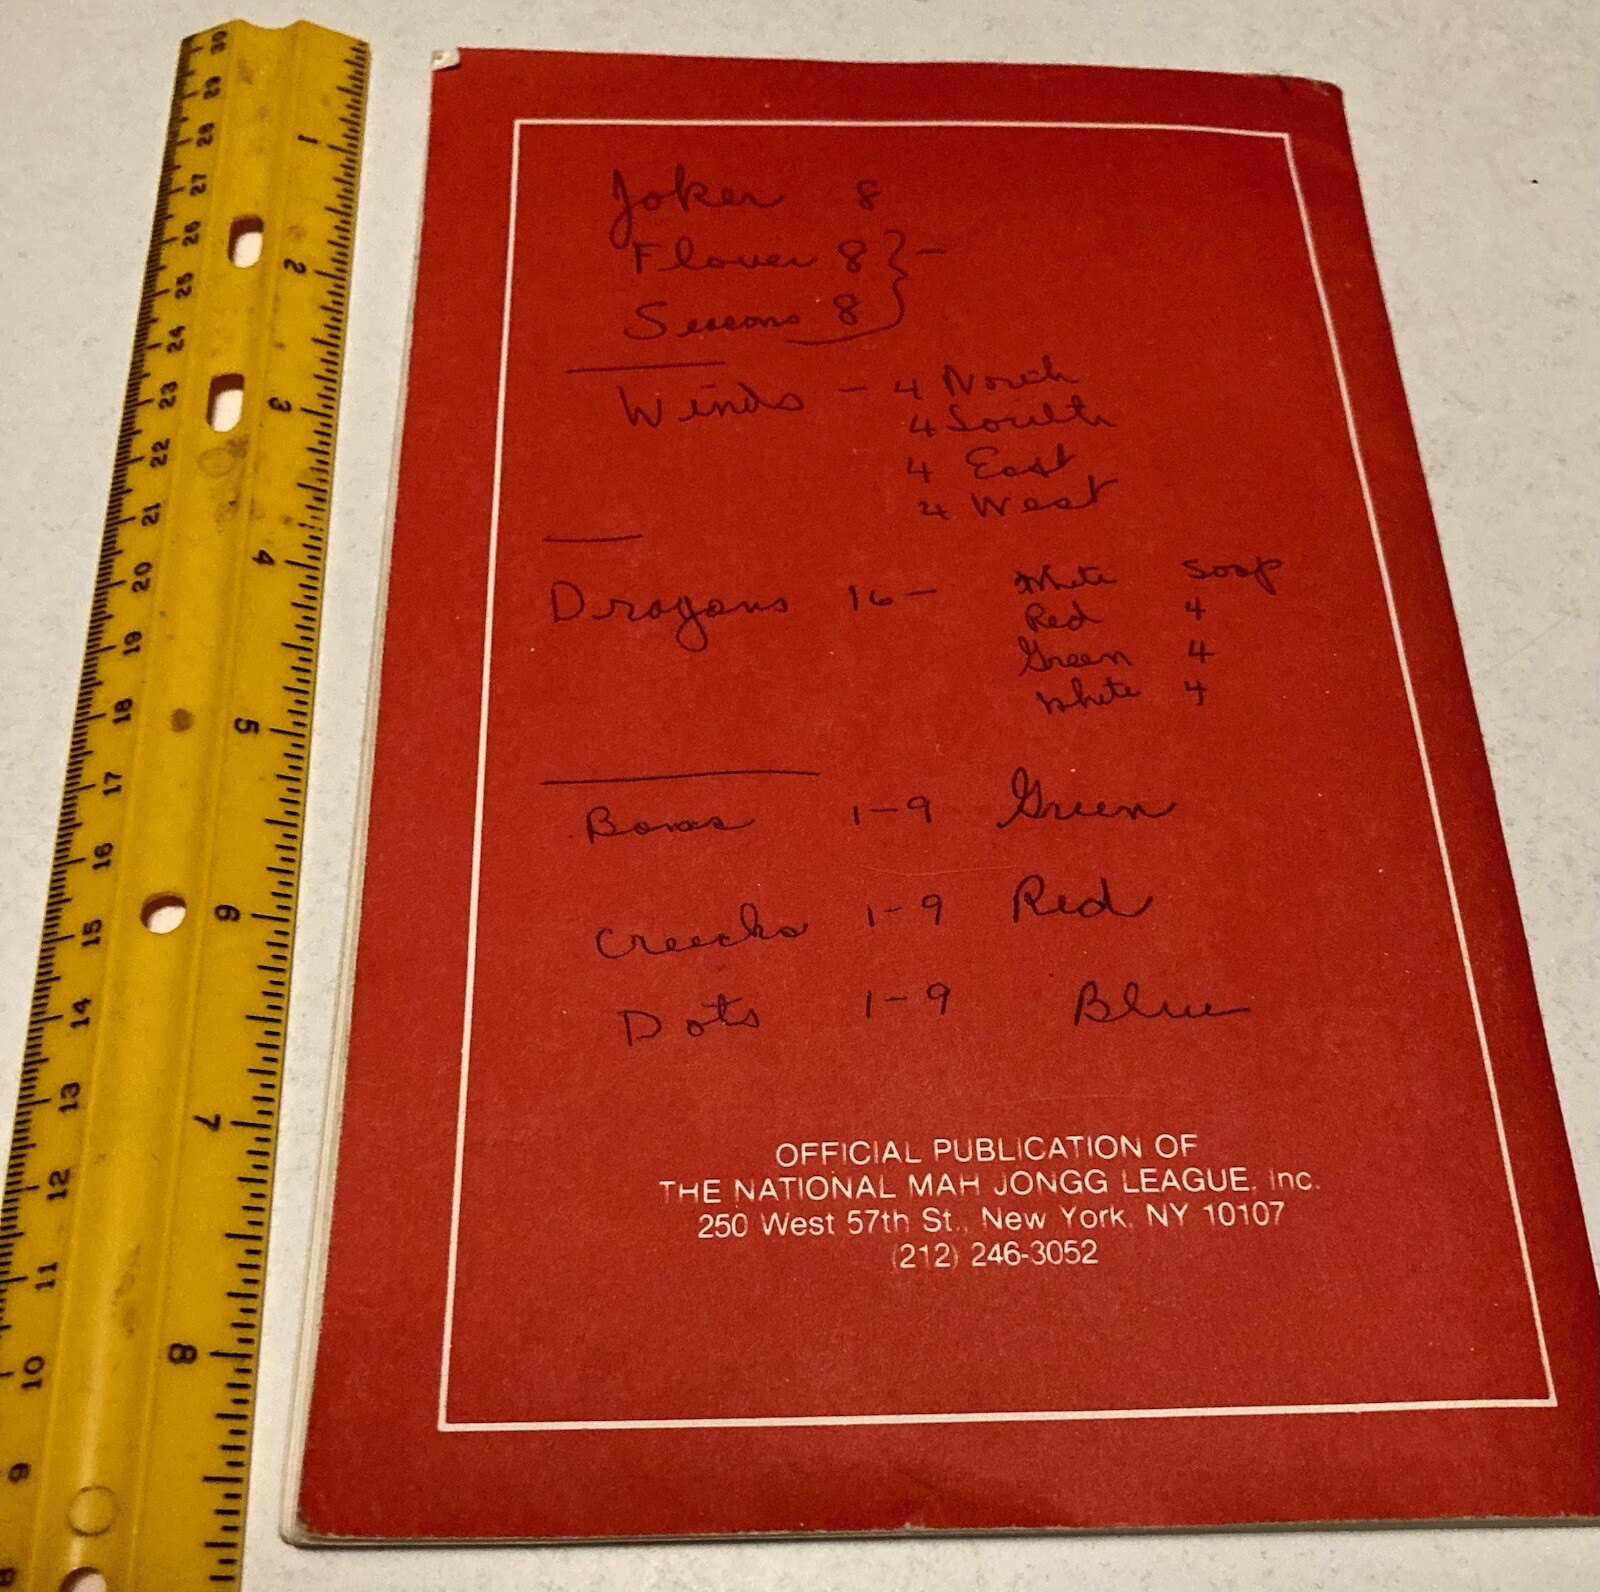 Joker 8
Flower 8 } -
Seasons 8
Winds - 4 North
4 South
4 East
4 West
Dragons 16 - White Soap
Red 4
Green 4
White 4
1-9 Green
1-9 Red
Dots 1-9 Blue
OFFICIAL PUBLICATION OF
THE NATIONAL MAH JONGG LEAGUE, Inc.
250 West 57th St., New York, NY 10107
(212) 246-3052
30
29
28
27
26
25
24
23
22
21
20
19
18
17
16
15
14
13
12
11
10
9
8
1
2
3
4
5
6
7
8